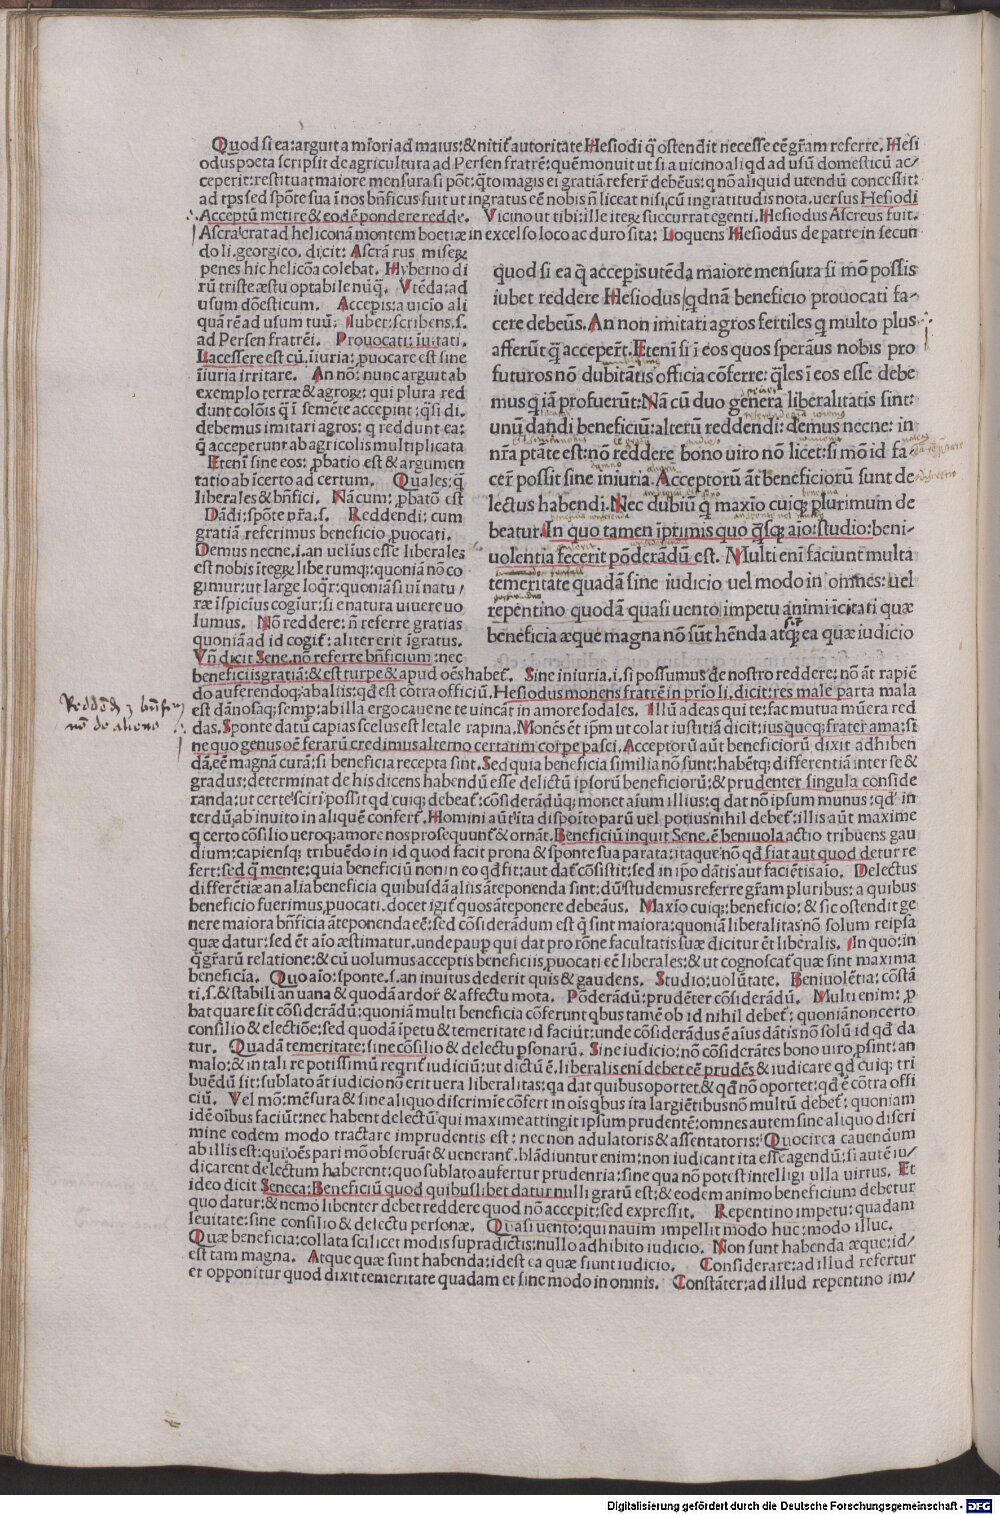 Quod si ea: arguit a mīori ad maius: & nitit̄ autoritate Hesiodi q̄ ostendit necesse eē gr̄am referre. Hesi
odus poeta scripsit de agricultura ad Persen fratrē: quē monuit ut si a uicino aliqd ad usū domesticū ac/
ceperit: restituat maiore mensura si pōt: q̄to magis ei gratiā referr̄ debēus: q nō aliquid utendū concessit:
ad tp̄s sed spōte sua ī nos bn̄ficus fuit ut ingratus eē nobis n̄ liceat nisi cū ingratitudis nota. uersus Hesiodi
Acceptū metire & eodē pondere redde. Vicino ut tibi: ille iteꝝ succurrat egenti. Hesiodus Ascreus fuit.
Ascra: crat ad heliconā montem boetiæ in excelso loco ac duro sita: Loquens Hesiodus de patre in secun
do li. georgico. dicit: Ascrā rus miseꝝ
penes hic helicōa colebat. Hyberno di
rū triste æstu optabile nūq̄. Vtēda: ad
usum dōesticum. Accepis: a uicīo ali
quā rē ad usum tuū. Iubet: scribens. s.
ad Persen fratrēi. Prouocati: īuitati.
Lacessere est cū īiuria: ꝓuocare est sine
īiuria irritare. An nō: nunc arguit ab
exemplo terræ & agroꝝ: qui plura red
dunt colōis q̄ ī semēte accepint: q̄si di.
debemus imitari agros: q reddunt ea:
q̄ acceperunt ab agricolis multiplicata
Etenī sine eos: ꝓbatio est & argumen
tatio ab īcerto ad certum. Quales: q̄
liberales & bn̄fici. Nā cum: ꝓbatō est
Dādi: spōte pr̄a. s. Reddendi: cum
gratiā referimus beneficio ꝓuocati.
Demus necne. i. an uelius esse liberales
est nobis īteꝝ liberumq;: quoniā nō co
gimur: ut large loq̄r: quoniā si uī natu/
ræ īspicius cogiur: si e natura uiuere uo
lumus. Nō reddere: n̄ referre gratias
quoniā ad id cogit̄: aliter erit īgratus.
Vn̄ dicit Sene. nō referre bn̄ficium: nec
quod si ea q̄ accepis utēda maiore mensura si mō possis
iubet reddere Hesiodus: qdnā beneficio prouocati fa-
cere debeūs. An non imitari agros fertiles q multo plus
afferūt q̄ acceper̄t. Etenī si ī eos quos speraūs nobis pro
futuros nō dubitātis officia cōferre: q̄les ī eos esse debe
mus q iā profuerūt: Nā cū duo genera liberalitatis sint:
unū dandi beneficiū: alterū reddendi: demus necne: in
nr̄a ptate est: nō reddere bono uiro nō licet: si mō id fa-
cer̄ possit sine iniuria. Acceptorū āt beneficiorū sunt de
lectus habendi. Nec dubiū q̄ maxīo cuiq; plurimum de
beatur. In quo tamen īprimis quo q̄sq; aīo: studio: beni-
uolentia fecerit pōderādū est. Multi enī faciunt multa
temeritate quadā sine iudicio uel modo in omnes: uel
repentino quodā quasi uento impetu animi icitati quæ
beneficia æque magna nō sūt hēnda atq; ea quæ iudicio
beneficiis gratiā: & est turpe & apud oēs habet̄. Sine iniuria. i. si possumus de nostro reddere: nō āt rapiē
do auferendoq; ab aliis: qd est cōtra officiū. Hesiodus monens fratrē in prīo li. dicit: res male parta mala
est dānosaq; semp: ab illa ergo caue ne te uincāt in amore sodales. Illū adeas qui te: fac mutua mūera red
das. Sponte datū capias scelus est letale rapina. Monēs ēt ipm ut colat iustitiā dicit: iusqueq; frater ama: si
ne quo genus oē ferarū credimus alterno certatim corpe pasci. Acceptorū aūt beneficiorū dixit adhiben
dā eē magnā curā: si beneficia recepta sint. Sed quia beneficia similia nō sunt: habētq; differentiā inter se &
gradus: determinat de his dicens habendū esse delictū ipsorū beneficiorū: & prudenter singula conside
randa: ut certe sciri possit qd cuiq; debeat̄: cōsiderādūq; monet aīum illius: q dat nō ipsum munus: qd in
terdū ab inuito in aliquē confert̄. Homini aūt ita dispoīto parū uel potius nihil debet̄: illis aūt maxime
q certo cōsilio ueroq; amore nos prosequunt̄ & ornāt. Beneficiū inquit Sene. ē beniuola actio tribuens gau
dium: capiensq; tribuēdo in id quod facit prona & sponte sua parata: itaque nō qd fiat aut quod detur re
fert: sed q̄ mente: quia beneficiū non in eo qd fit: aut dat̄ cōsistit: sed in ipo dātis aut faciētis aīo. Delectus
differētiæ an alia beneficia quibusdā aliis āteponenda sint: dū studemus referre gr̄am pluribus: a quibus
beneficio fuerimus ꝓuocati. docet igit̄ quos āteponere debeāus. Maxīo cuiq;: beneficio: & sic ostendit ge
nere maiora bn̄ficia āteponenda eē: sed cōsiderādum est q̄ sint maiora: quoniā liberalitas nō solum reipsa
quæ datur: sed ēt aīo æstimatur. unde paup qui dat pro rōne facultatis suæ dicitur ēt liberalis. In quo: in
q̄ gr̄arū relatione: & cū uolumus acceptis beneficiis ꝓuocati eē liberales: & ut cognoscat̄ quæ sint maxima
beneficia. Quo aīo: sponte. s. an inuitus dederit quis & gaudens. Studio: uolūtate. Beniuolētia: cōstā
ti. s. & stabili an uana & quodā ardor̄ & affectu mota. Pōderādū: prudēter cōsiderādū. Multi enim: ꝓ
bat quare sit cōsiderādū: quoniā multi beneficia cōferunt qbus tamē ob id nihil debet̄: quoniā non certo
consilio & electiōe: sed quodā īpetu & temeritate id faciūt: unde cōsiderādus ē aīus dātis nō solū id qd da
tur. Quadā temeritate: sine cōsilio & delectu ꝑsonarū. Sine iudicio: nō cōsiderātes bono uiro ꝓsint: an
malo: & in tali re potissimū reqrit̄ iudiciū: ut dictū ē. liberalis enī debet eē prudēs & iudicare qd cuiq; tri
buēdū sit: sublato āt iudicio nō erit uera liberalitas: qa dat quibus oportet & qd nō oportet: qd ē cōtra offi
ciū. Vel mō: mēsura & sine aliquo discrimīe cōfert in oīs qbus ita largiētibus nō multū debet̄: quoniam
idē oībus faciūt: nec habent delectū qui maxime attingit ipsum prudentē: omnes autem sine aliquo discri
mine eodem modo tractare imprudentis est: nec non adulatoris & assentatoris: Quocirca cauendum
ab illis est: qui oēs pari mō obseruāt & uenerant̄. blādiuntur enim: non iudicant ita esse agendū: si autē iu/
dicarent delectum haberent: quo sublato aufertur prudenria: sine qua nō potest intelligi ulla uirtus. Et
ideo dicit Seneca: Beneficiū quod quibuslibet datur nulli gratū est: & eodem animo beneficium debetur
quo datur: & nemo libenter debet reddere quod nō accepit: sed expressit. Repentino impetu: quadam
leuitate: sine consilio & delectu personæ. Quasi uento: qui nauim impellit modo huc: modo illuc.
Quæ beneficia: collata scilicet modis supradictis: nullo adhibito iudicio. Non sunt habenda æque: id/
est tam magna. Atque quæ sunt habenda: idest ea quæ fiunt iudicio. Considerare: ad illud refertur
et opponitur quod dixit temeritate quadam et sine modo in omnis. Constāter: ad illud repentino im/
Digitalisierung gefördert durch die Deutsche Forschungsgemeinschaft - DFG